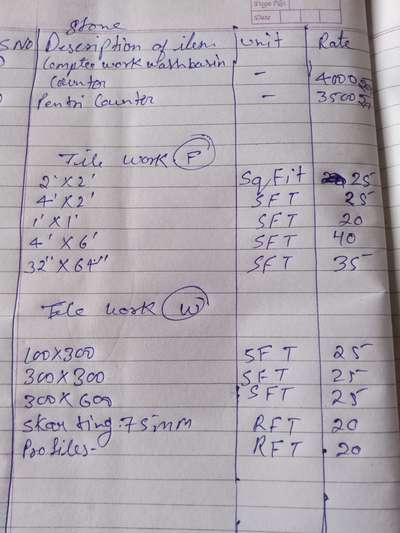 Stone
S.NO Description of item Unit Rate
Compter work washbasin
Counter - 4000
Pentri Counter - 3500
Tile work (F)
2' X 2' Sq, Fit 25
4' X 2' SFT 25
1' X 1' SFT 20
4' X 6' SFT 40
32" X 64" SFT 35
Tile work (W)
100X300 SFT 25
300X300 SFT 25
300X600 SFT 25
Skarting.75mm RFT 20
Profiles- RFT 20